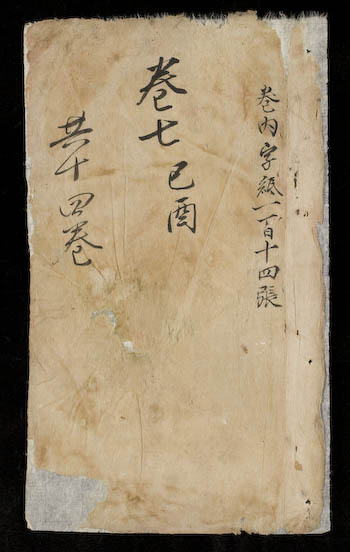 卷內字紙一百十四張
卷七 己酉
共十四卷